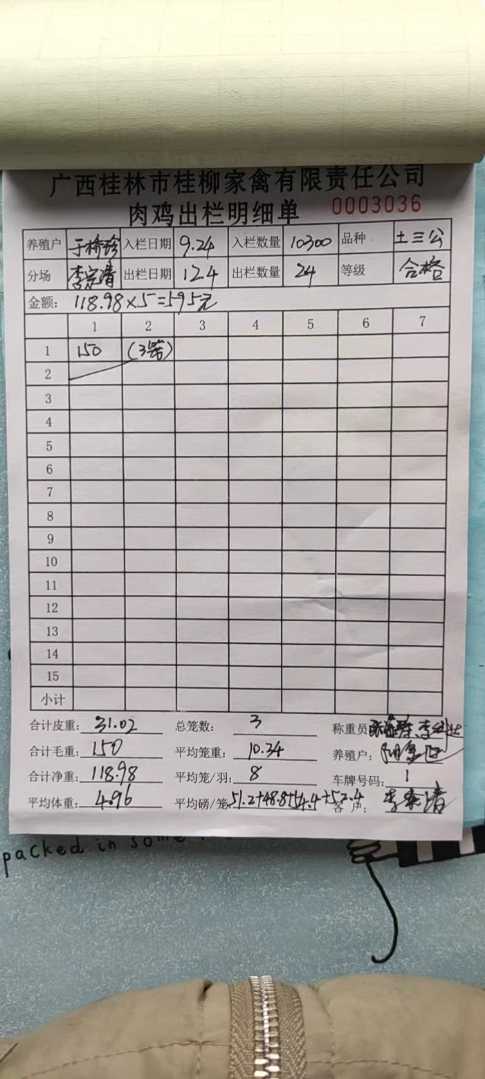 广西桂林市桂柳家禽有限责任公司
肉鸡出栏明细单 0003036
养殖户 于桥珍 入栏日期 9.24 入栏数量 10300 品种 土三公
分场 李宗清 出栏日期 12.4 出栏数量 24 等级 合格
金额: 118.98×5=595元
1 2 3 4 5 6 7
1 150 (3笼)
2
3
4
5
6
7
8
9
10
11
12
13
14
15
小计
合计皮重: 31.02 总笼数: 3 称重员
合计毛重: 150 平均笼重: 10.34 养殖户:
合计净重: 118.98 平均笼/羽: 8 车牌号码: 1
平均体重: 4.96 平均磅/笼 客户: 李宗清
packed in some